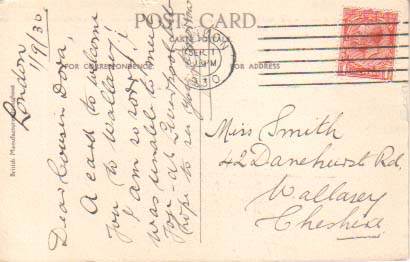 POST CARD
CARTE POSTALE
FOR CORRESPONDENCE
FOR ADDRESS
British Manufacture
SEP 1
1930
London
1/9/30.
Dear Cousin Dora,
A card to welcome
you to Wallasey!
I am so sorry I
was unable to meet
you at Liverpool. I do
hope to see you
Miss Smith
42 Danehurst Rd.
Wallasey
Cheshire